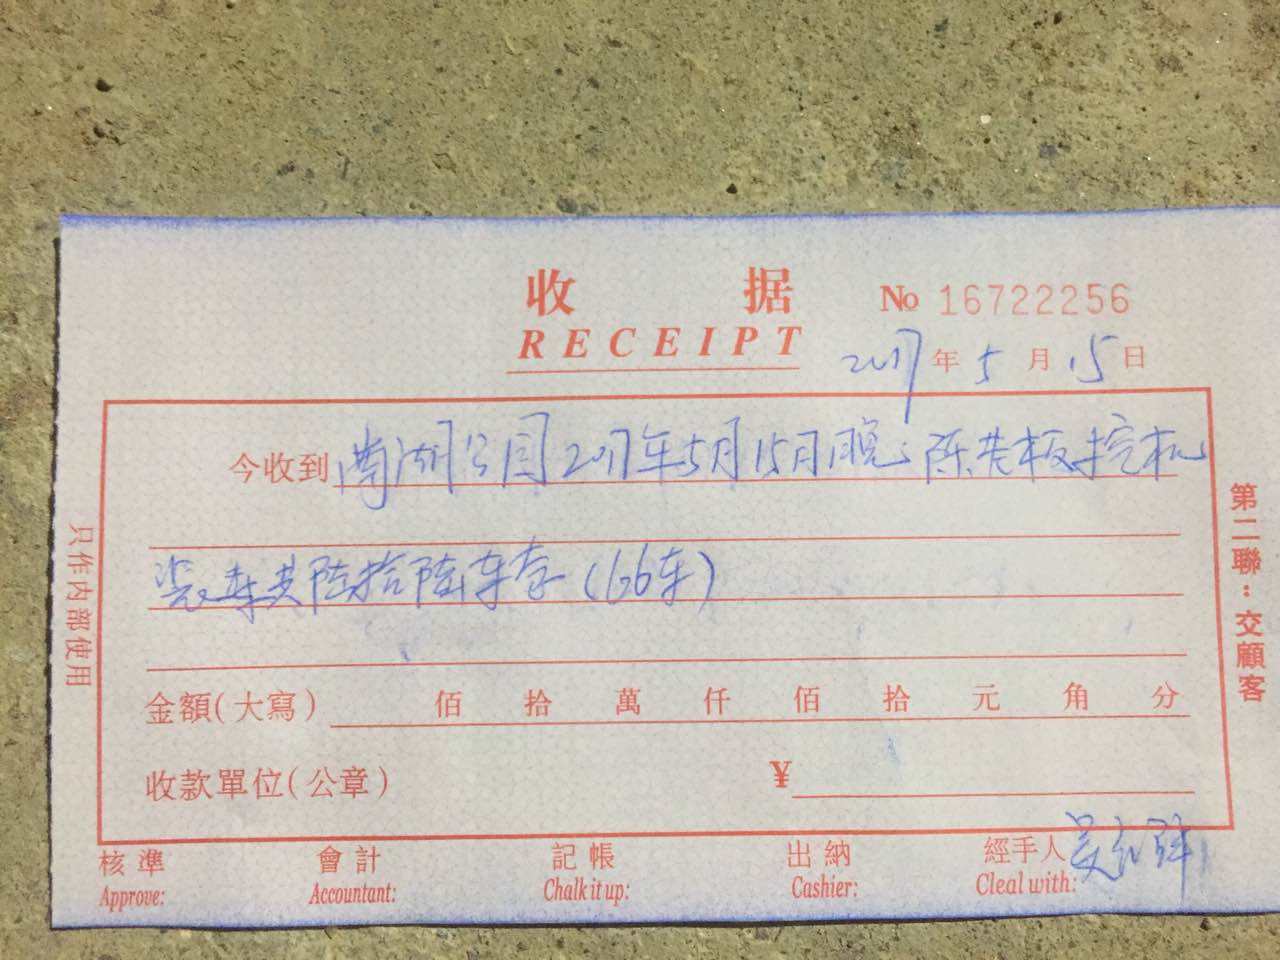 收据
RECEIPT
No 16722256
2017年5月15日
今收到南湖公园2017年5月15日晚陈老板挖机
装车共陆拾陆车（66车）
金額(大寫) 佰 拾 萬 仟 佰 拾 元 角 分
收款單位(公章) ¥
核準 會計 記帳 出納 經手人
Approve: Accountant: Chalk it up: Cashier: Cleal with:
只作内部使用
第二聯:交顧客